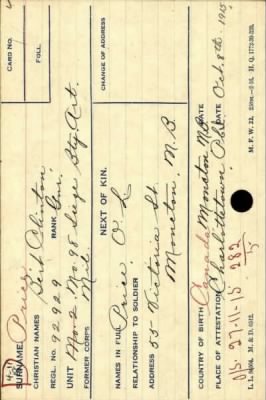 CARD NO.
FOLL.
SURNAME Price
CHRISTIAN NAMES Bert Clinton
REGL. NO. 92929 RANK Gnr.
UNIT No. 2, No. 98 Siege Bty. Art.
FORMER CORPS Mil.
NEXT OF KIN.
CHANGE OF ADDRESS
NAMES IN FULL Price O L
RELATIONSHIP TO SOLDIER
ADDRESS 55 Victoria St.
Moncton, N.B.
COUNTRY OF BIRTH Canada Moncton N.B. DATE
PLACE OF ATTESTATION Charlottetown P.E.I. DATE Oct. 8th 1915
27-11-15 282
M. F. W. 22.